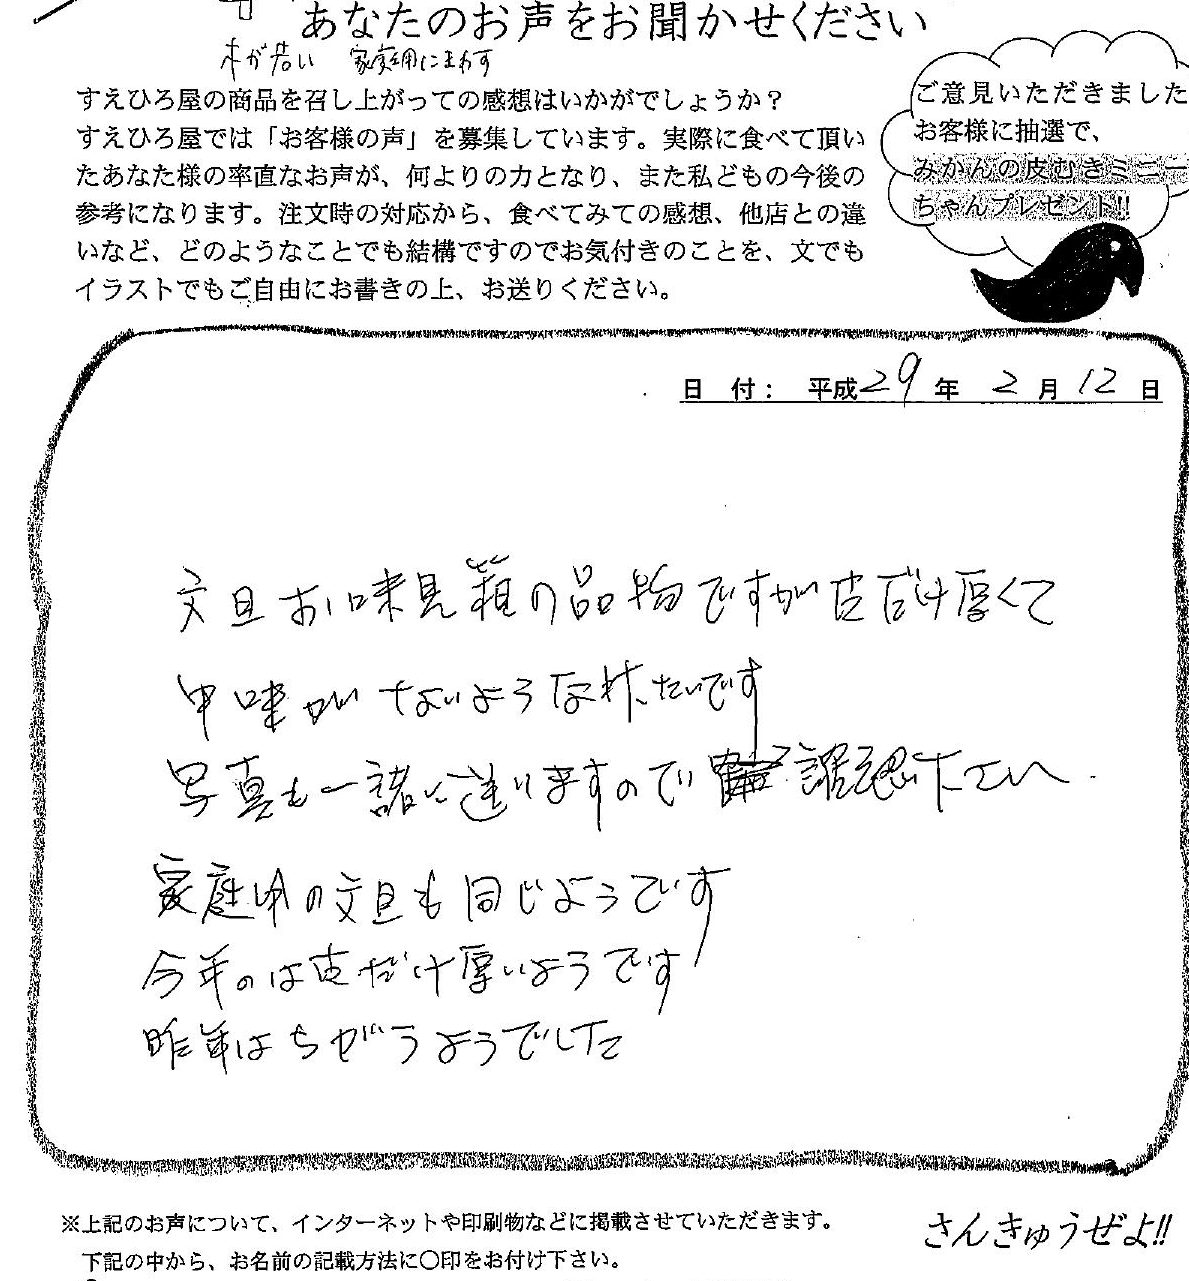 あなたのお声をお聞かせください
木が若い 家庭用にまわす
すえひろ屋の商品を召し上がっての感想はいかがでしょうか？
すえひろ屋では「お客様の声」を募集しています。実際に食べて頂い
たあなた様の率直なお声が、何よりの力となり、また私どもの今後の
参考になります。注文時の対応から、食べてみての感想、他店との違
いなど、どのようなことでも結構ですのでお気付きのことを、文でも
イラストでもご自由にお書きの上、お送りください。
ご意見いただきました
お客様に抽選で、
みかんの皮むきミニー
ちゃんプレゼント!!
日 付： 平成29年 2月12日
文旦お味見箱の品物ですが皮だけ厚くて
中味がないような状たいです
写真も一諸に送りますので 認下さい
家庭用の文旦も同じようです
今年のは皮だけ厚いようです
昨年はちがうようでした
※上記のお声について、インターネットや印刷物などに掲載させていただきます。
下記の中から、お名前の記載方法に○印をお付け下さい。
さんきゅうぜよ!!